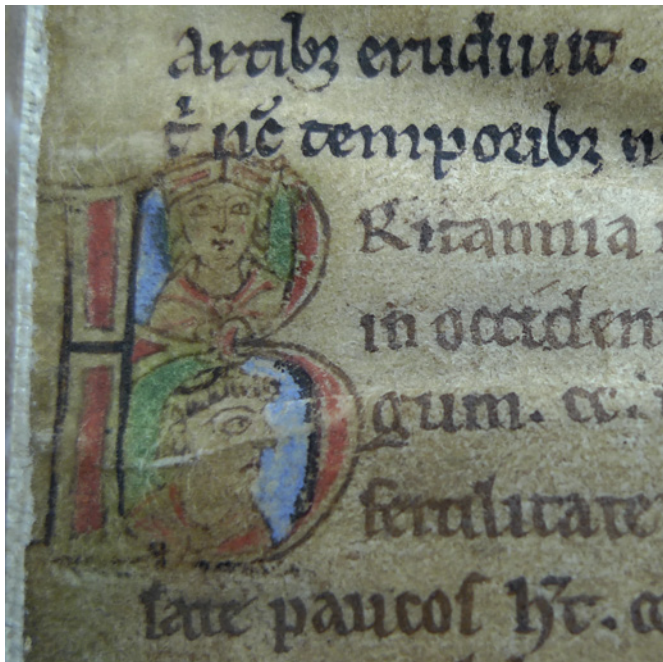 artibꝫ erudiuit.
t̾ nc̄ temporibꝫ
BRitannia
in occiden
gum. cc.
fertilitate
ſate paucoſ h̾t.